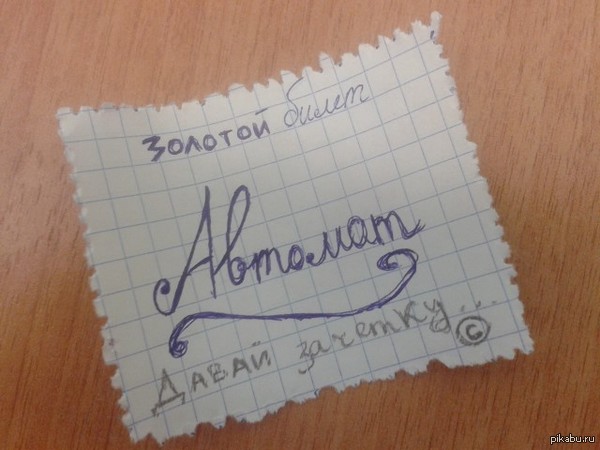 Золотой билет
Автомат
Давай зачетку...
©
pikabu.ru